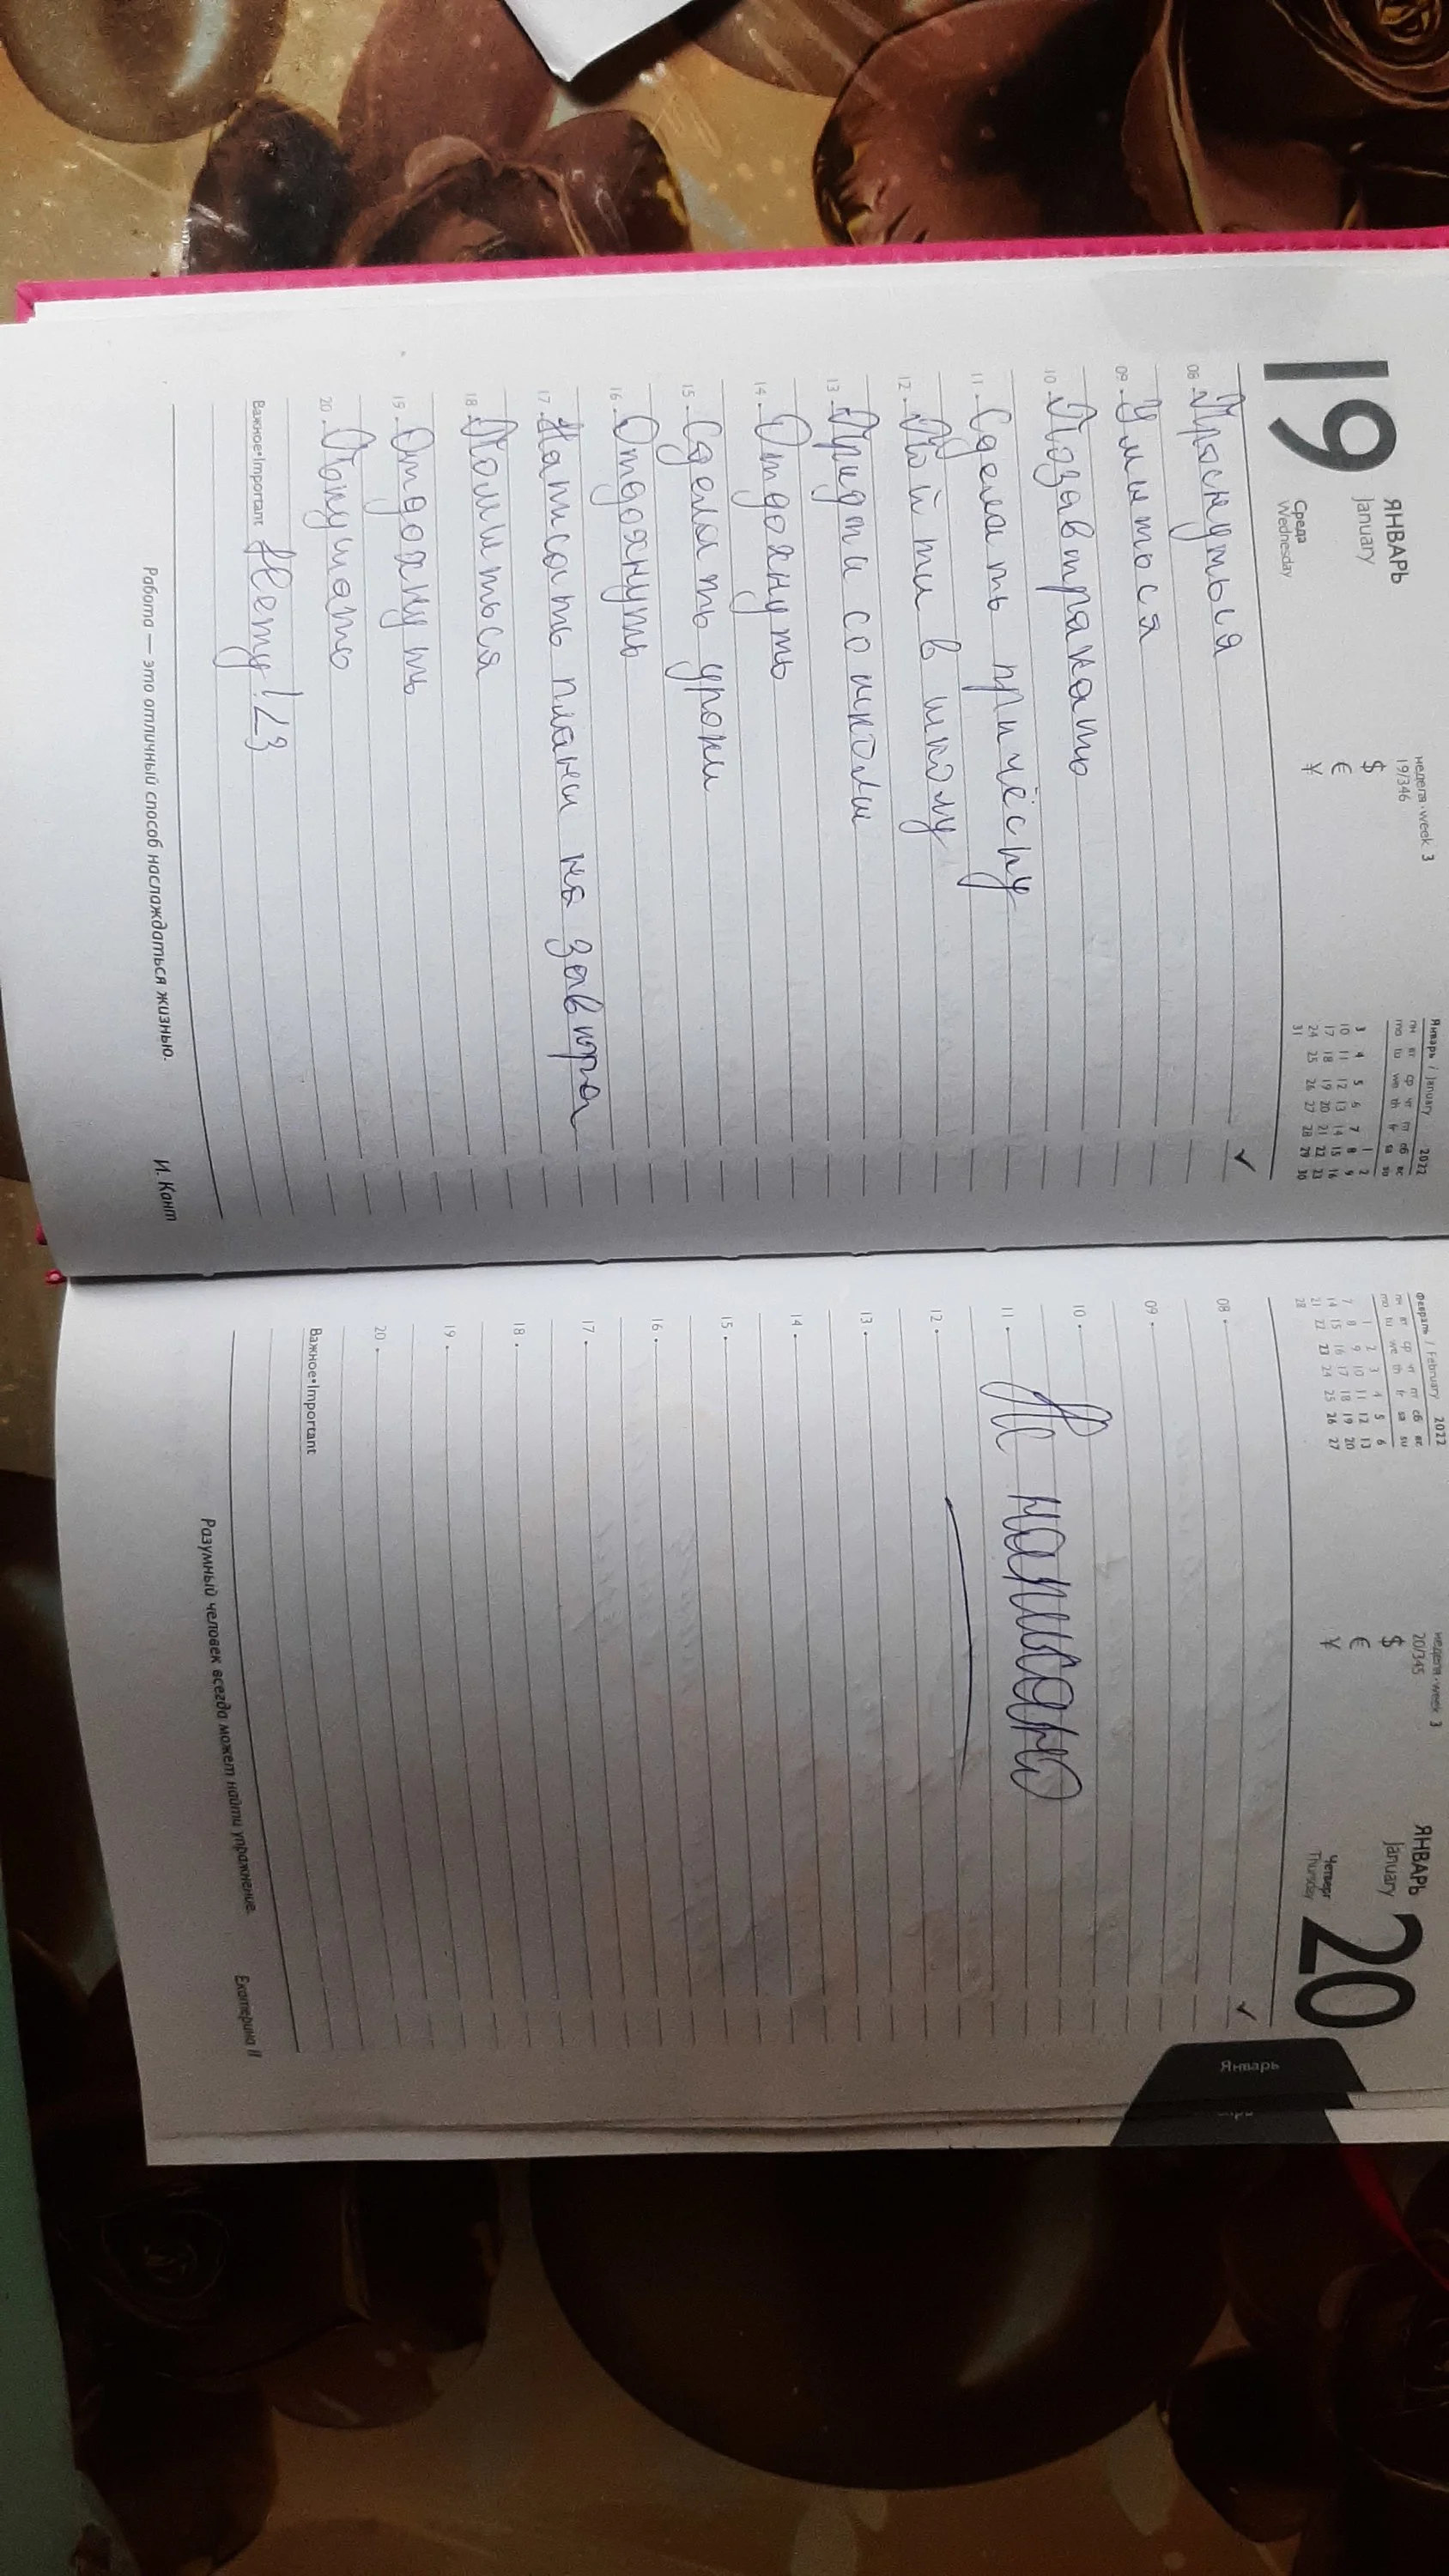 19
ЯНВАРЬ
January
Среда
Wednesday
неделя • week 3
19/346
$
€
¥
Январь / January 2022
пн вт ср чт пт сб вс
mo tu we th fr sa su
1 2
3 4 5 6 7 8 9
10 11 12 13 14 15 16
17 18 19 20 21 22 23
24 25 26 27 28 29 30
31
✓
08 Проснуться
09 Умыться
10 Позавтракать
11 Сделать причёску
12 Пойти в школу
13 Придти со школы
14 Отдохнуть
15 Сделать уроки
16 Отдохнуть
17 Написать планы на завтра
18 Помыться
19 Отдохнуть
20 Покушать
Важное•Important Нету! <3
Работа — это отличный способ наслаждаться жизнью.
И. Кант
Февраль / February 2022
пн вт ср чт пт сб вс
mo tu we th fr sa su
1 2 3 4 5 6
7 8 9 10 11 12 13
14 15 16 17 18 19 20
21 22 23 24 25 26 27
28
неделя • week 3
20/345
$
€
¥
ЯНВАРЬ
January
Четверг
Thursday
20
✓
Январь
08
09
10
11 Не написано
12
13
14
15
16
17
18
19
20
Важное•Important
Разумный человек всегда может найти упражнение.
Екатерина II